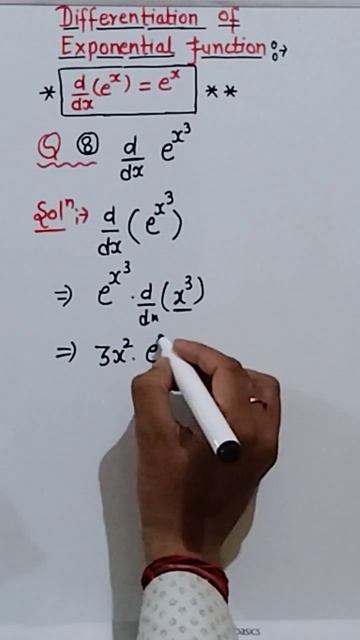 Differentiation of
Exponential function :→
* d/dx (eˣ) = eˣ **
Q ⑧ d/dx e^x³
Solⁿ :→ d/dx (e^x³)
⇒ e^x³ · d/dx (x³)
⇒ 3x² · e
basics